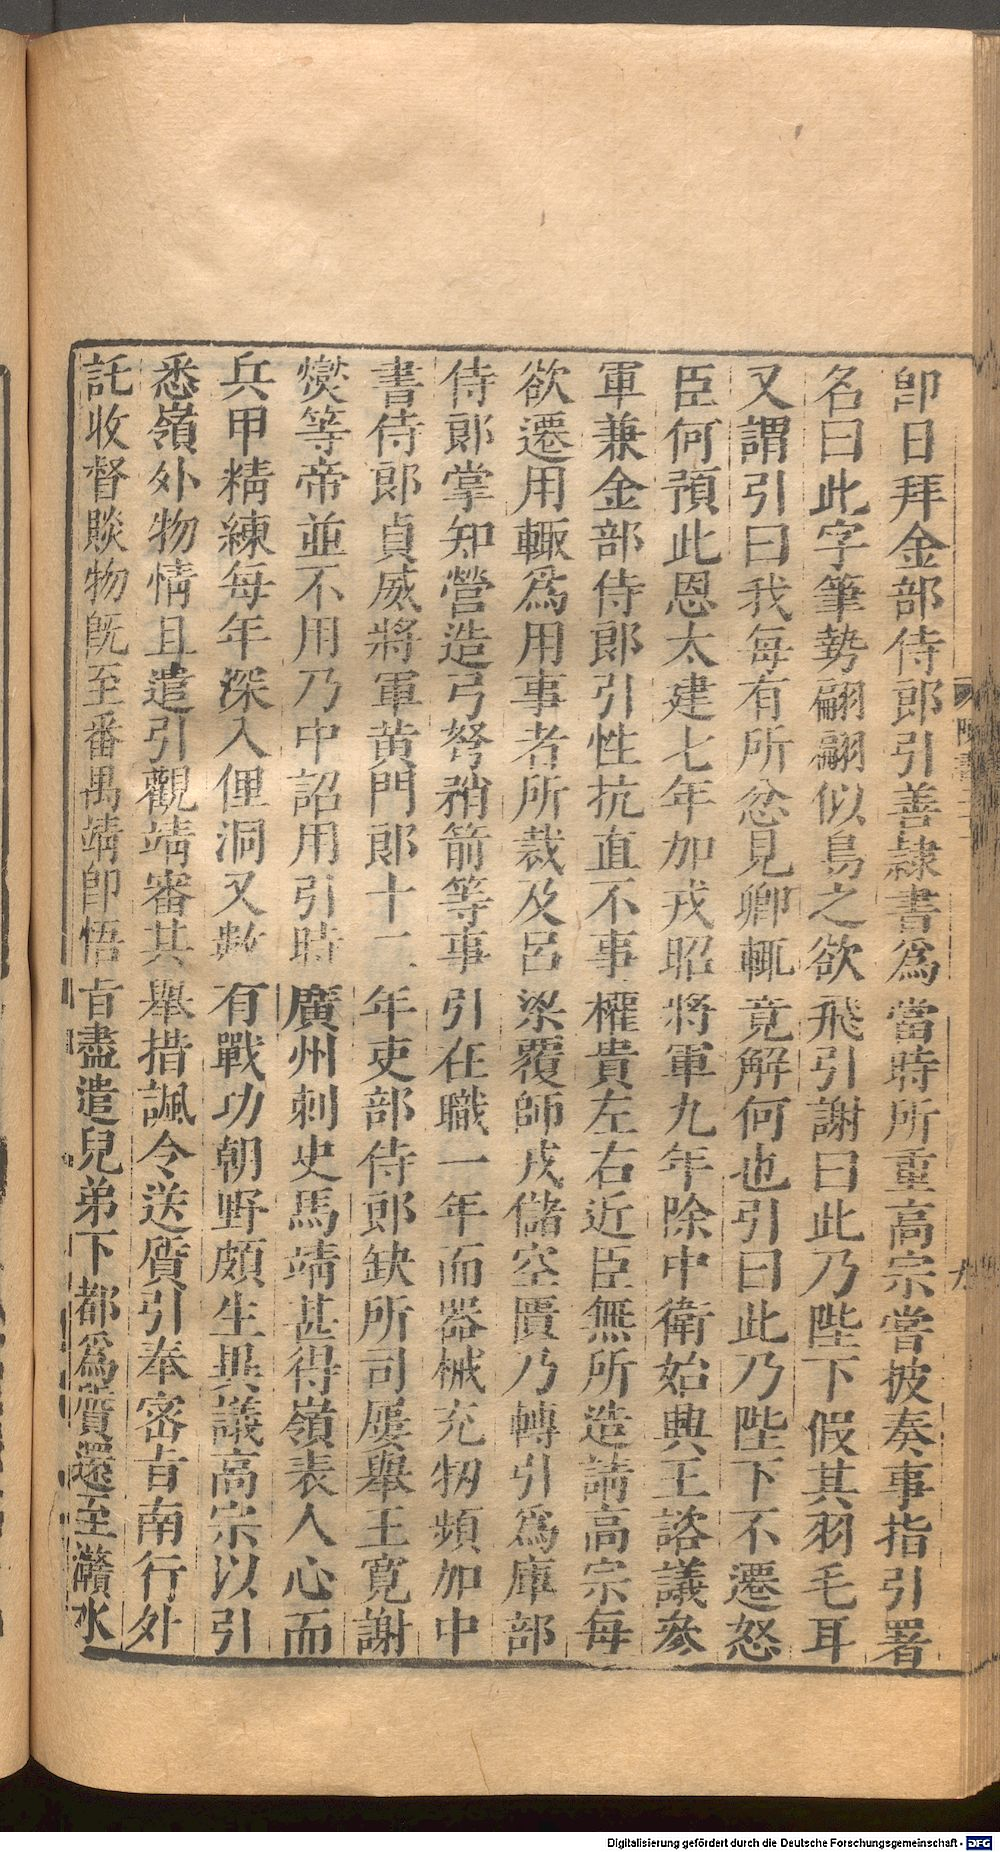 卽日拜金部侍郞引善隷書爲當時所重高宗嘗披奏事指引署
名曰此字筆勢翩翩似鳥之欲飛引謝曰此乃陛下假其羽毛耳
又謂引曰我每有所忿見卿輒竟解何也引曰此乃陛下不遷怒
臣何預此恩太建七年加戎昭將軍九年除中衛始興王諮議參
軍兼金部侍郞引性抗直不事權貴左右近臣無所造請高宗每
欲遷用輒爲用事者所裁及呂梁覆師戎儲空匱乃轉引爲庫部
侍郞掌知營造弓弩矟箭等事引在職一年而器械充牣頻加中
書侍郞貞威將軍黃門郞十二年吏部侍郞缺所司屢舉王寬謝
爕等帝並不用乃中詔用引時廣州刺史馬靖甚得嶺表人心而
兵甲精練每年深入俚洞又數有戰功朝野頗生異議高宗以引
悉嶺外物情且遣引觀靖審其舉措諷令送質引奉密旨南行外
託收督賧物旣至番禺靖卽悟旨盡遣兒弟下都爲質還至灨水
陳書
九
Digitalisierung gefördert durch die Deutsche Forschungsgemeinschaft - DFG